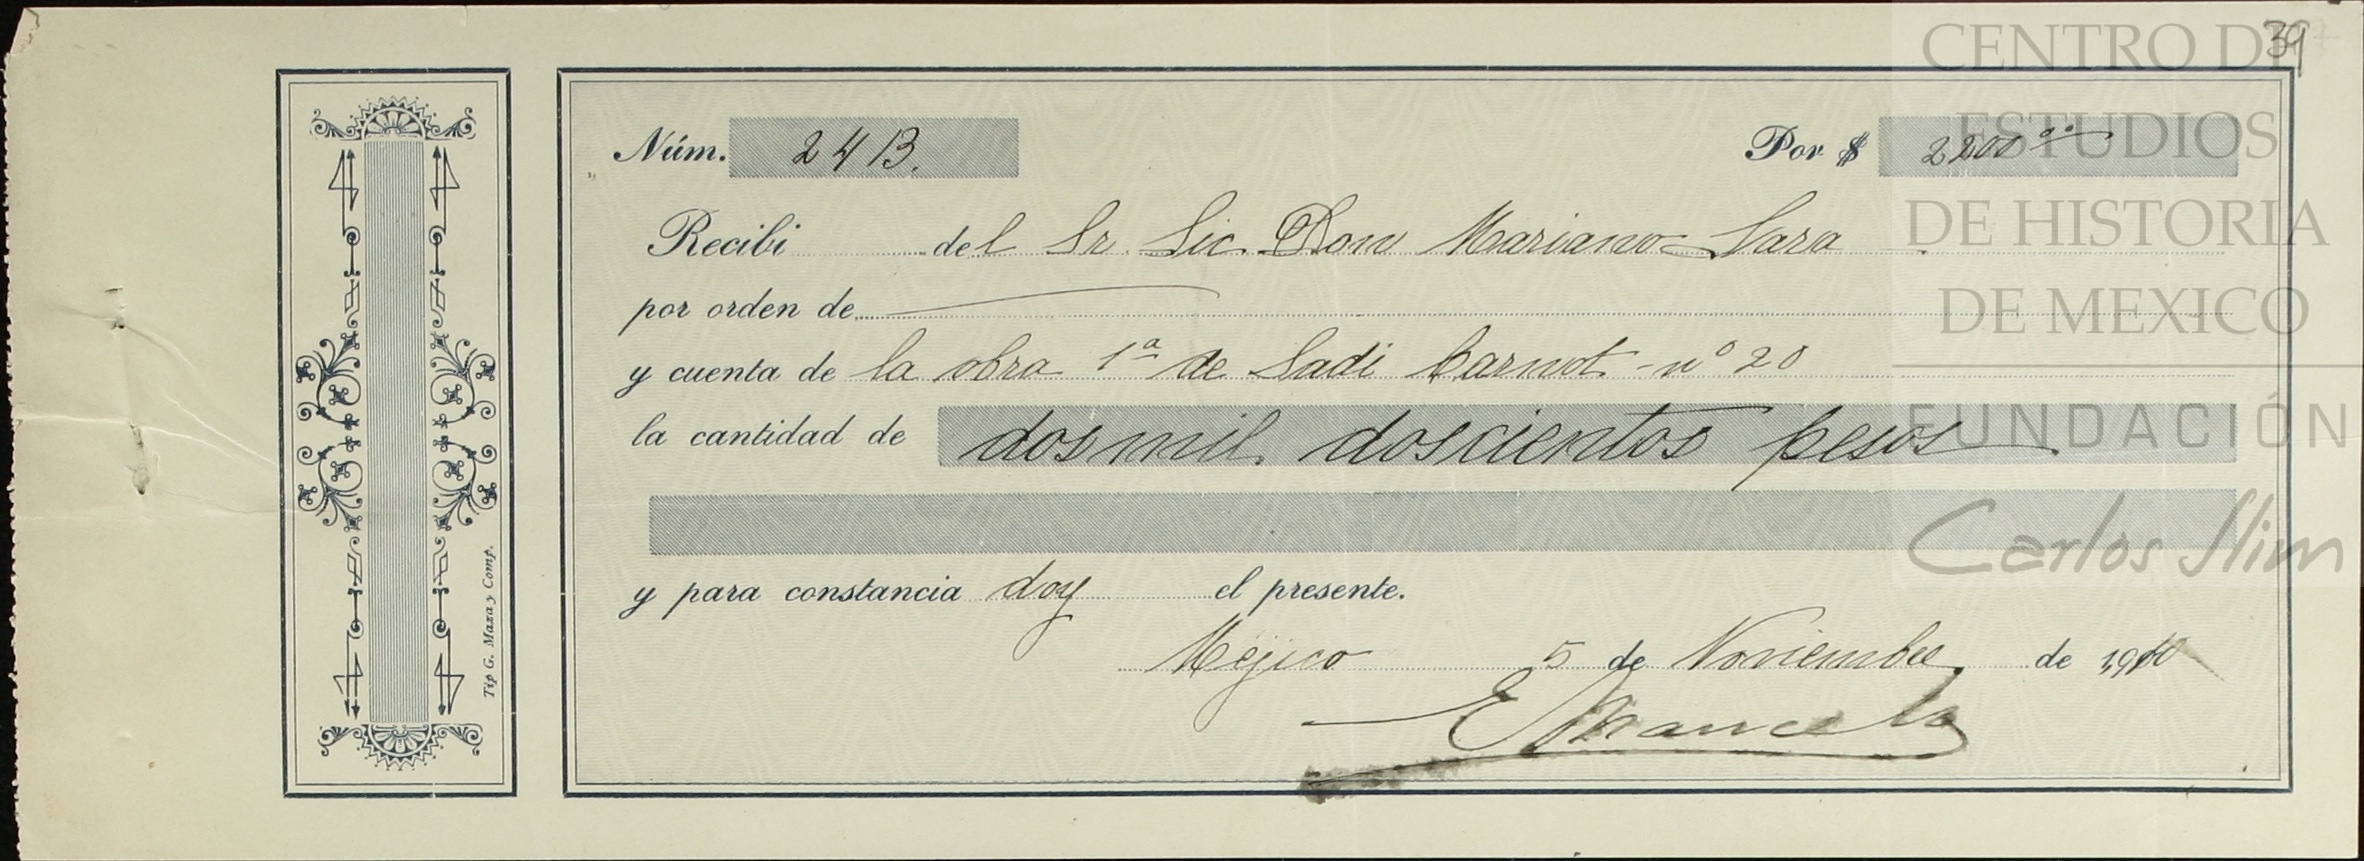 39
CENTRO DE
ESTUDIOS
DE HISTORIA
DE MEXICO
FUNDACIÓN
Carlos Slim
Núm. 2413. Por $ 2200 °°
Recibí del Sr. Lic. Don Mariano Lara
por orden de
y cuenta de la obra 1ª de Sadi Carnot - nº 20
la cantidad de dos mil doscientos pesos
y para constancia doy el presente.
Méjico 5 de Noviembre de 1910
Tip G. Maza y Comp.